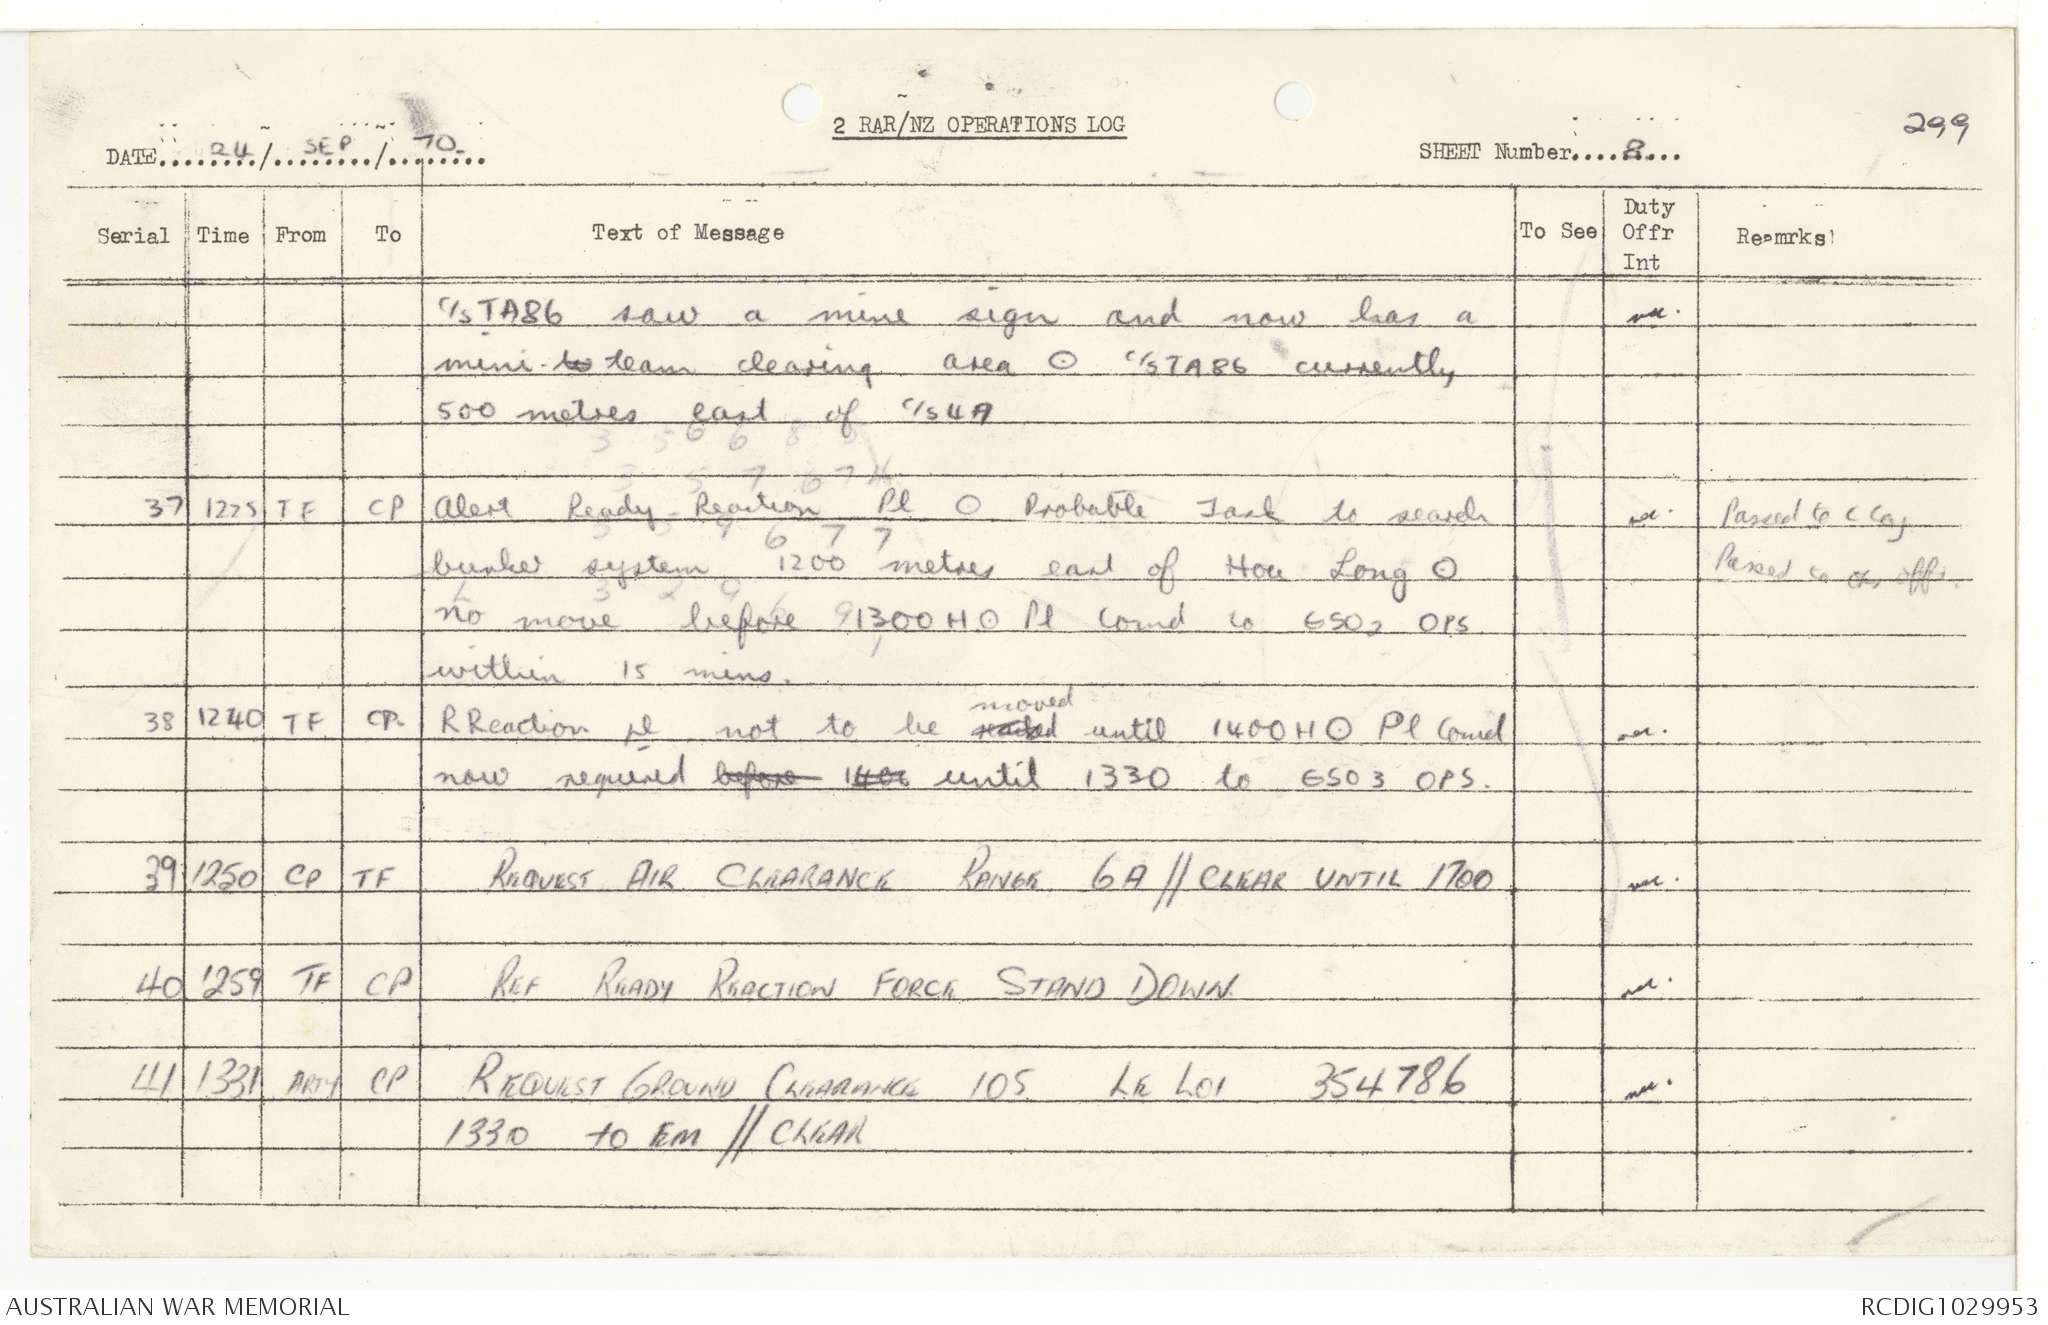 299
2 RAR/NZ OPERATIONS LOG
DATE 24 / SEP / 70. SHEET Number 8
Serial Time From To Text of Message To See Duty Offr Int Remrks
C/S TA86 saw a mine sign and now has a
mini to team clearing area ⊙ C/S TA86 currently
500 metres east of C/S 4A
3 5 6 6 8
3 5 7 6 7 4
37 1225 TF CP Alert Ready Reaction Pl ⊙ Probable Task to search Passed to C Coy
6 7 7
bunker system 1200 metres east of Hoa Long ⊙ Passed to offr.
3 2 9
no move before 1300H ⊙ Pl Comd to GSO2 OPS
within 15 mins.
moved
38 1240 TF CP. R Reaction pl not to be until 1400H ⊙ Pl Comd
now required before 1400 until 1330 to GSO3 OPS.
39 1250 CP TF REQUEST AIR CLEARANCE RANGE 6A // CLEAR UNTIL 1700
40 1259 TF CP REF READY REACTION FORCE STAND DOWN.
41 1331 ARTY CP REQUEST GROUND CLEARANCE 105 LE LOI 354786
1330 to EM // CLEAR
AUSTRALIAN WAR MEMORIAL RCDIG1029953